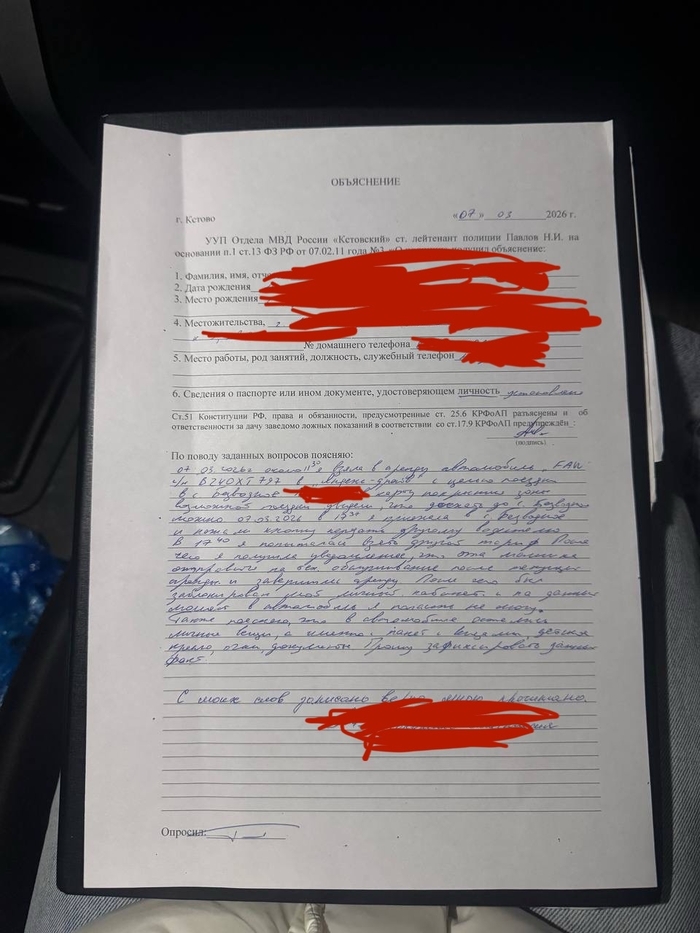 ОБЪЯСНЕНИЕ
г. Кстово «07» 03 2026 г.
УУП Отдела МВД России «Кстовский» ст. лейтенант полиции Павлов Н.И. на
основании п.1 ст.13 ФЗ РФ от 07.02.11 года объяснение:
1. Фамилия, имя,
2. Дата рождения
3. Место рождения
4. Местожительства,
№ домашнего телефона
5. Место работы, род занятий, должность, служебный телефон
6. Сведения о паспорте или ином документе, удостоверяющем личность установлено
Ст.51 Конституции РФ, права и обязанности, предусмотренные ст. 25.6 КРФоАП разъяснены и об
ответственности за дачу заведомо ложных показаний в соответствии со ст.17.9 КРФоАП предупреждён :
(подпись)
По поводу заданных вопросов поясняю:
07.03.2026 около 11 взяла в аренду автомобиль FAW
В240ХТ797 в Яндекс-драйв с целью поездки
в с. Безводное
до с. Безводн
можно 07.03.2026 в 15 я приехала в с. Безводное
и
В 17 40 я попыталась взять другой тариф После
чего я получила уведомление, что эта машина
на обслуживание после текущей
аренды и завершили аренду. После чего был
заблокирован мой личный кабинет и на данный
момент в автомобиль я попасть не могу.
Также поясняю, что в автомобиле остались
личные вещи, а именно: пакет с вещами, детское
кресло, очки, документы Прошу зафиксировать данный
факт.
С моих слов записано верно мною прочитано.
Опросил: